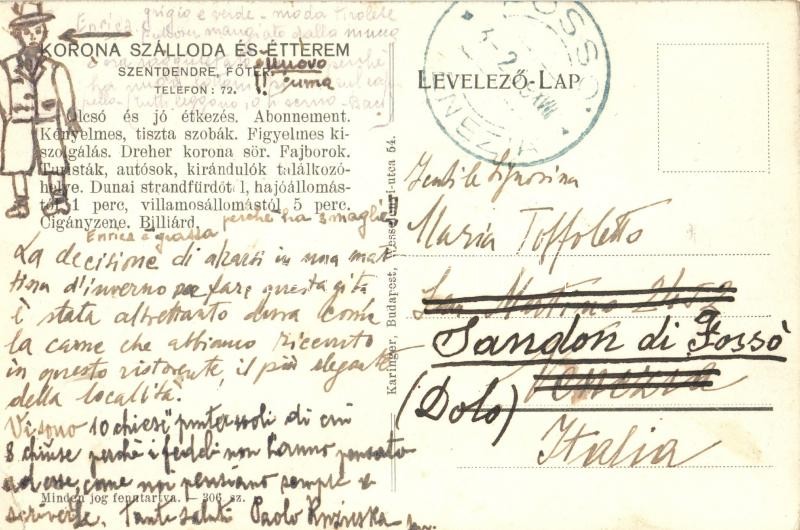 Enrica è grigio e verde - moda Tirolese
KORONA SZÁLLODA ÉS ÉTTEREM
SZENTENDRE, FŐTÉR
TELEFON: 72.
nuovo
piuma
Olcsó és jó étkezés. Abonnement.
Kényelmes, tiszta szobák. Figyelmes ki-
szolgálás. Dreher korona sör. Fajborok.
Turisták, autósok, kirándulók találkozó-
helye. Dunai strandfürdőtől, hajóállomás-
tól 1 perc, villamosállomástól 5 perc.
Cigányzene. Billiárd.
Enrica è grassa perchè ha 3 maglie
La decisione di alzarsi in una mat
tina d'inverno per fare questa gita
è stata altrettanto dura come
la carne che abbiamo ricevuto
in questo ristorante il più elegante
della località!
Vi sono 10 chiese puntessoli di cui
8 chiuse perchè i fedeli non hanno pensato
ad esse, come noi pensiamo sempre e
scriverle. Tanti saluti Paolo
Minden jog fenntartva. — 306. sz.
Karinger, Budapest, Wesselényi-utca 54.
LEVELEZŐ-LAP
FOSSO'
VENEZIA
Gentile Signorina
Maria Toffoletto
San Martino 2452
Sandon di Fossò
Venezia
(Dolo)
Italia